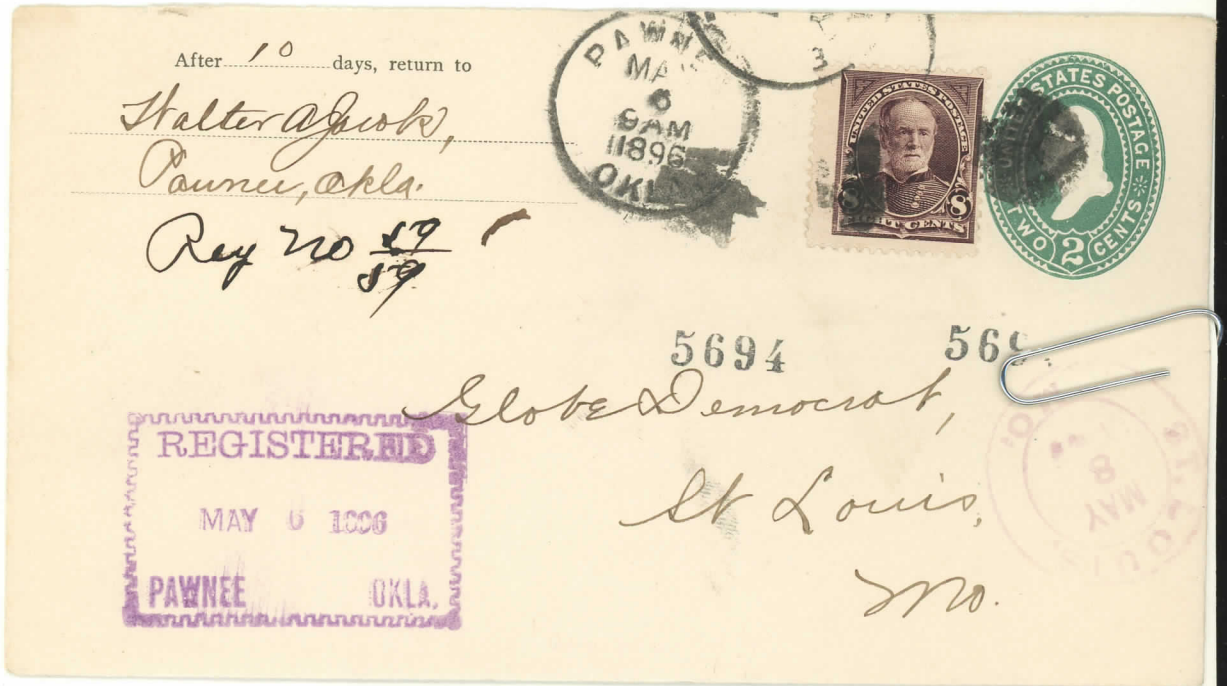 After 10 days, return to
Walter A
Pawnee, Okla.
Reg No 59
59
PAWNE
MA
6
9AM
1896
OKLA
3
UNITED STATES POSTAGE
8 8
EIGHT CENTS
STATES POSTAGE
TWO 2 CENTS
5694 569
Globe Democrat,
St Louis,
Mo.
REGISTERED
MAY 6 1896
PAWNEE OKLA.
ST. LOUIS MO.
MAY
8